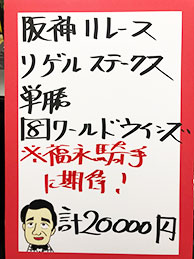 阪神11レース
リゲルステークス
単勝
8ワールドウインズ
※福永騎手
に期待!
計20000円